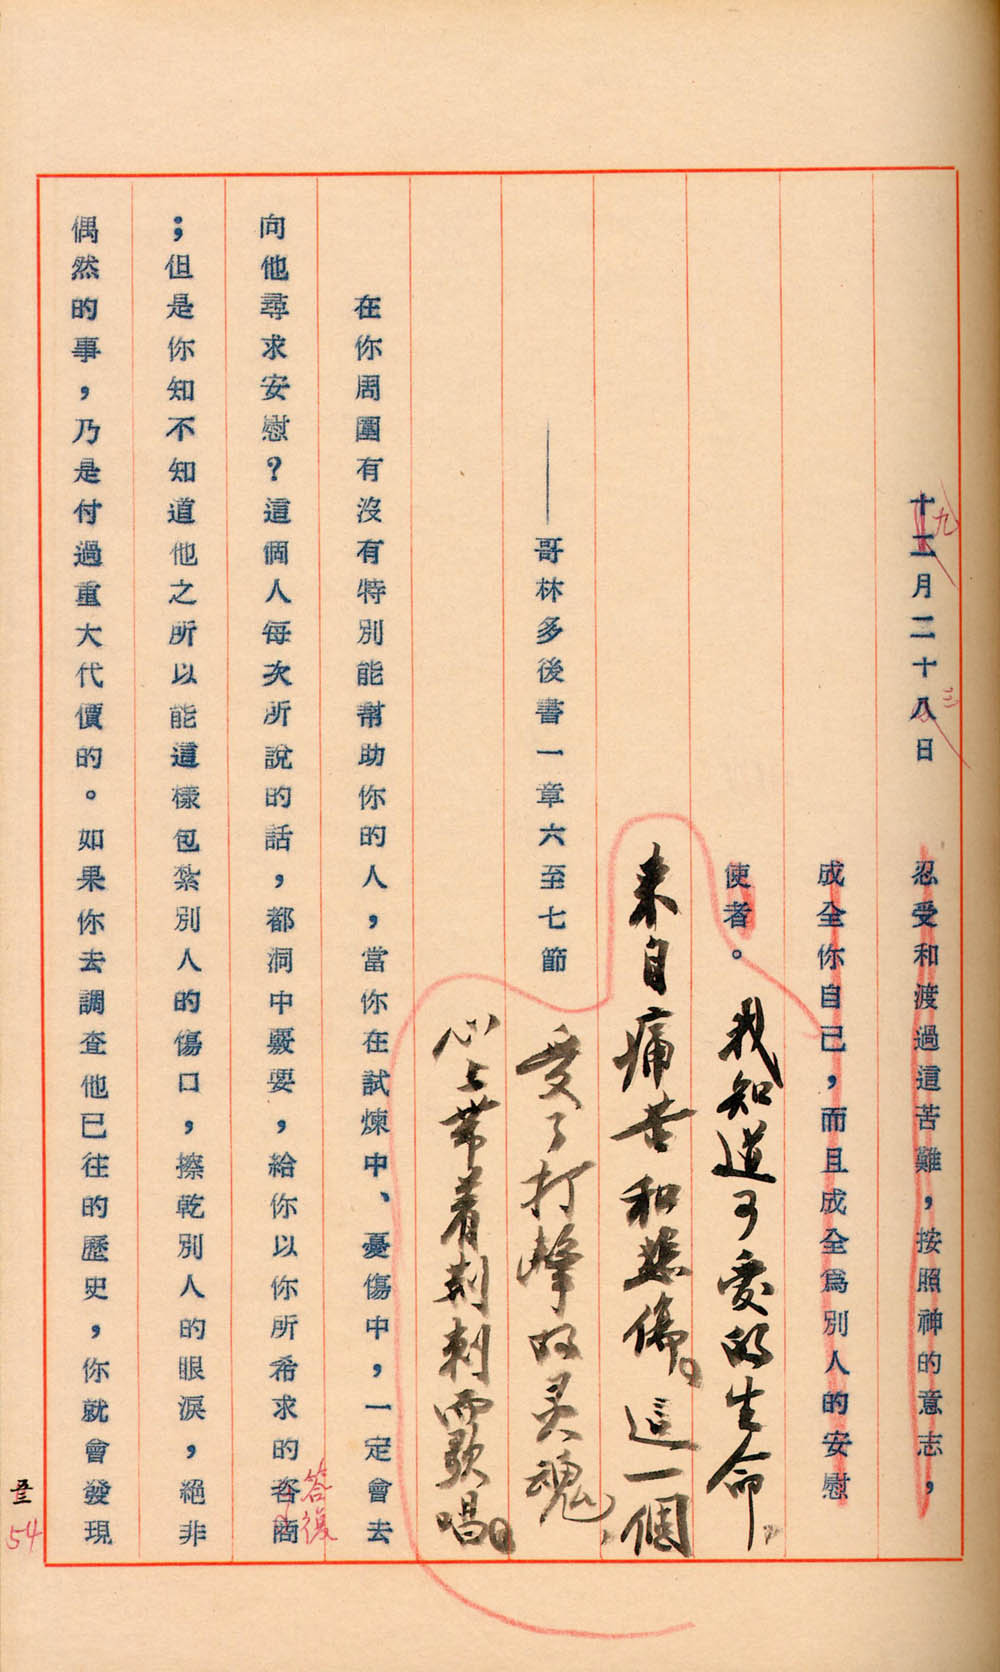 十二月二十八日
九
三
忍受和渡過這苦難，按照神的意志，
成全你自己，而且成全為別人的安慰
使者。
我知道可愛的生命，
來自痛苦和悲傷。這一個
受了打擊的灵魂，
心上带着荆刺而歌唱。
——哥林多後書一章六至七節
在你周圍有沒有特別能幫助你的人，當你在試煉中、憂傷中，一定會去
向他尋求安慰？這個人每次所說的話，都洞中竅要，給你以你所希求的咨商
答復
；但是你知不知道他之所以能這樣包紮別人的傷口，擦乾別人的眼淚，絕非
偶然的事，乃是付過重大代價的。如果你去調查他已往的歷史，你就會發現
54